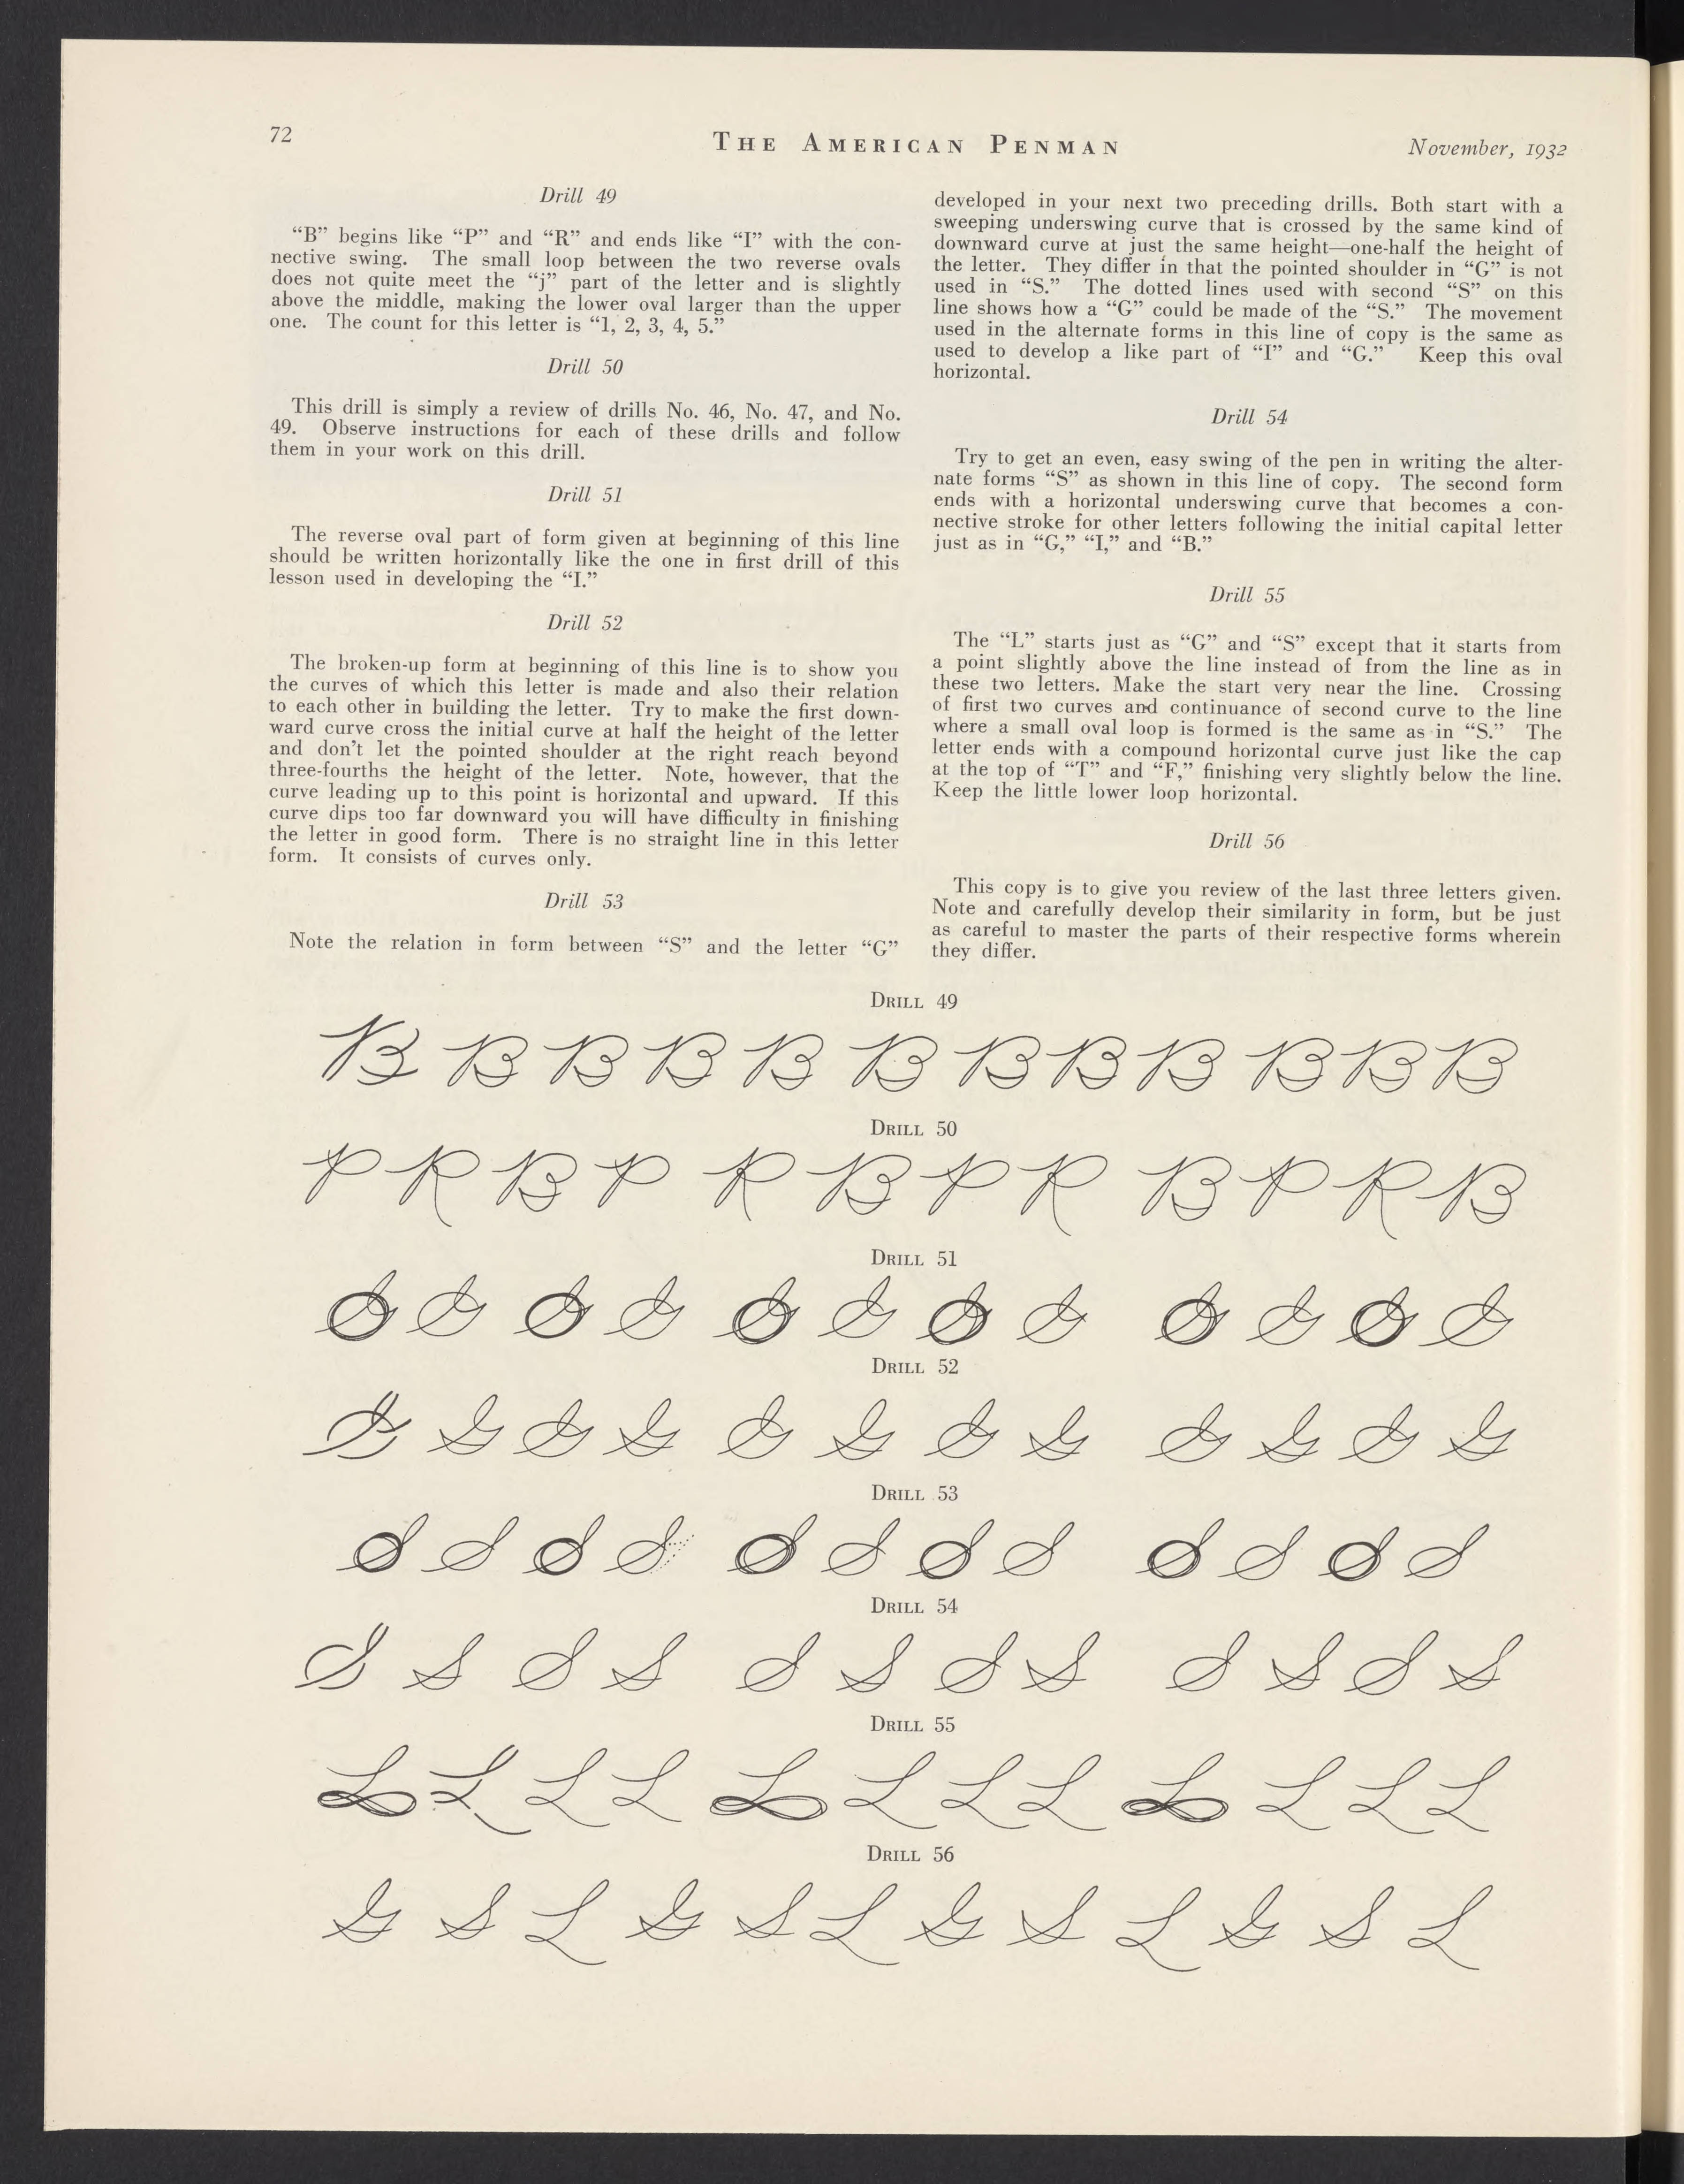 72
THE AMERICAN PENMAN
November, 1932
Drill 49
“B” begins like “P” and “R” and ends like “I” with the con-
nective swing. The small loop between the two reverse ovals
does not quite meet the “j” part of the letter and is slightly
above the middle, making the lower oval larger than the upper
one. The count for this letter is “1, 2, 3, 4, 5.”
Drill 50
This drill is simply a review of drills No. 46, No. 47, and No.
49. Observe instructions for each of these drills and follow
them in your work on this drill.
Drill 51
The reverse oval part of form given at beginning of this line
should be written horizontally like the one in first drill of this
lesson used in developing the “I.”
Drill 52
The broken-up form at beginning of this line is to show you
the curves of which this letter is made and also their relation
to each other in building the letter. Try to make the first down-
ward curve cross the initial curve at half the height of the letter
and don’t let the pointed shoulder at the right reach beyond
three-fourths the height of the letter. Note, however, that the
curve leading up to this point is horizontal and upward. If this
curve dips too far downward you will have difficulty in finishing
the letter in good form. There is no straight line in this letter
form. It consists of curves only.
Drill 53
Note the relation in form between “S” and the letter “G”
developed in your next two preceding drills. Both start with a
sweeping underswing curve that is crossed by the same kind of
downward curve at just the same height—one-half the height of
the letter. They differ in that the pointed shoulder in “G” is not
used in “S.” The dotted lines used with second “S” on this
line shows how a “G” could be made of the “S.” The movement
used in the alternate forms in this line of copy is the same as
used to develop a like part of “I” and “G.” Keep this oval
horizontal.
Drill 54
Try to get an even, easy swing of the pen in writing the alter-
nate forms “S” as shown in this line of copy. The second form
ends with a horizontal underswing curve that becomes a con-
nective stroke for other letters following the initial capital letter
just as in “G,” “I,” and “B.”
Drill 55
The “L” starts just as “G” and “S” except that it starts from
a point slightly above the line instead of from the line as in
these two letters. Make the start very near the line. Crossing
of first two curves and continuance of second curve to the line
where a small oval loop is formed is the same as in “S.” The
letter ends with a compound horizontal curve just like the cap
at the top of “T” and “F,” finishing very slightly below the line.
Keep the little lower loop horizontal.
Drill 56
This copy is to give you review of the last three letters given.
Note and carefully develop their similarity in form, but be just
as careful to master the parts of their respective forms wherein
they differ.
DRILL 49
B B B B B B B B B B B B
DRILL 50
P R B P R B P R B P R B
DRILL 51
G G G G G G G G G G G G
DRILL 52
G G G G G G G G G G G G
DRILL 53
S S S S S S S S S S S S
DRILL 54
S S S S S S S S S S S S
DRILL 55
L L L L L L L L L L L L
DRILL 56
G S L G S L G S L G S L